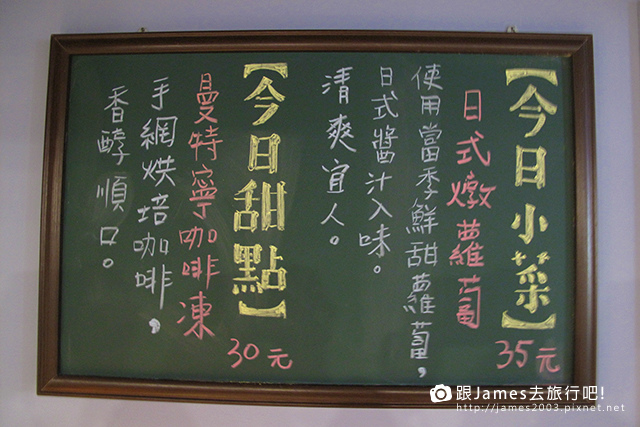 【今日小菜】
日式燉蘿蔔
35元
使用當季鮮甜蘿蔔，
日式醬汁入味。
清爽宜人。
【今日甜點】
曼特寧咖啡凍
30元
手網烘培咖啡，
香醇順口。
跟James去旅行吧!
http://james2003.pixnet.net